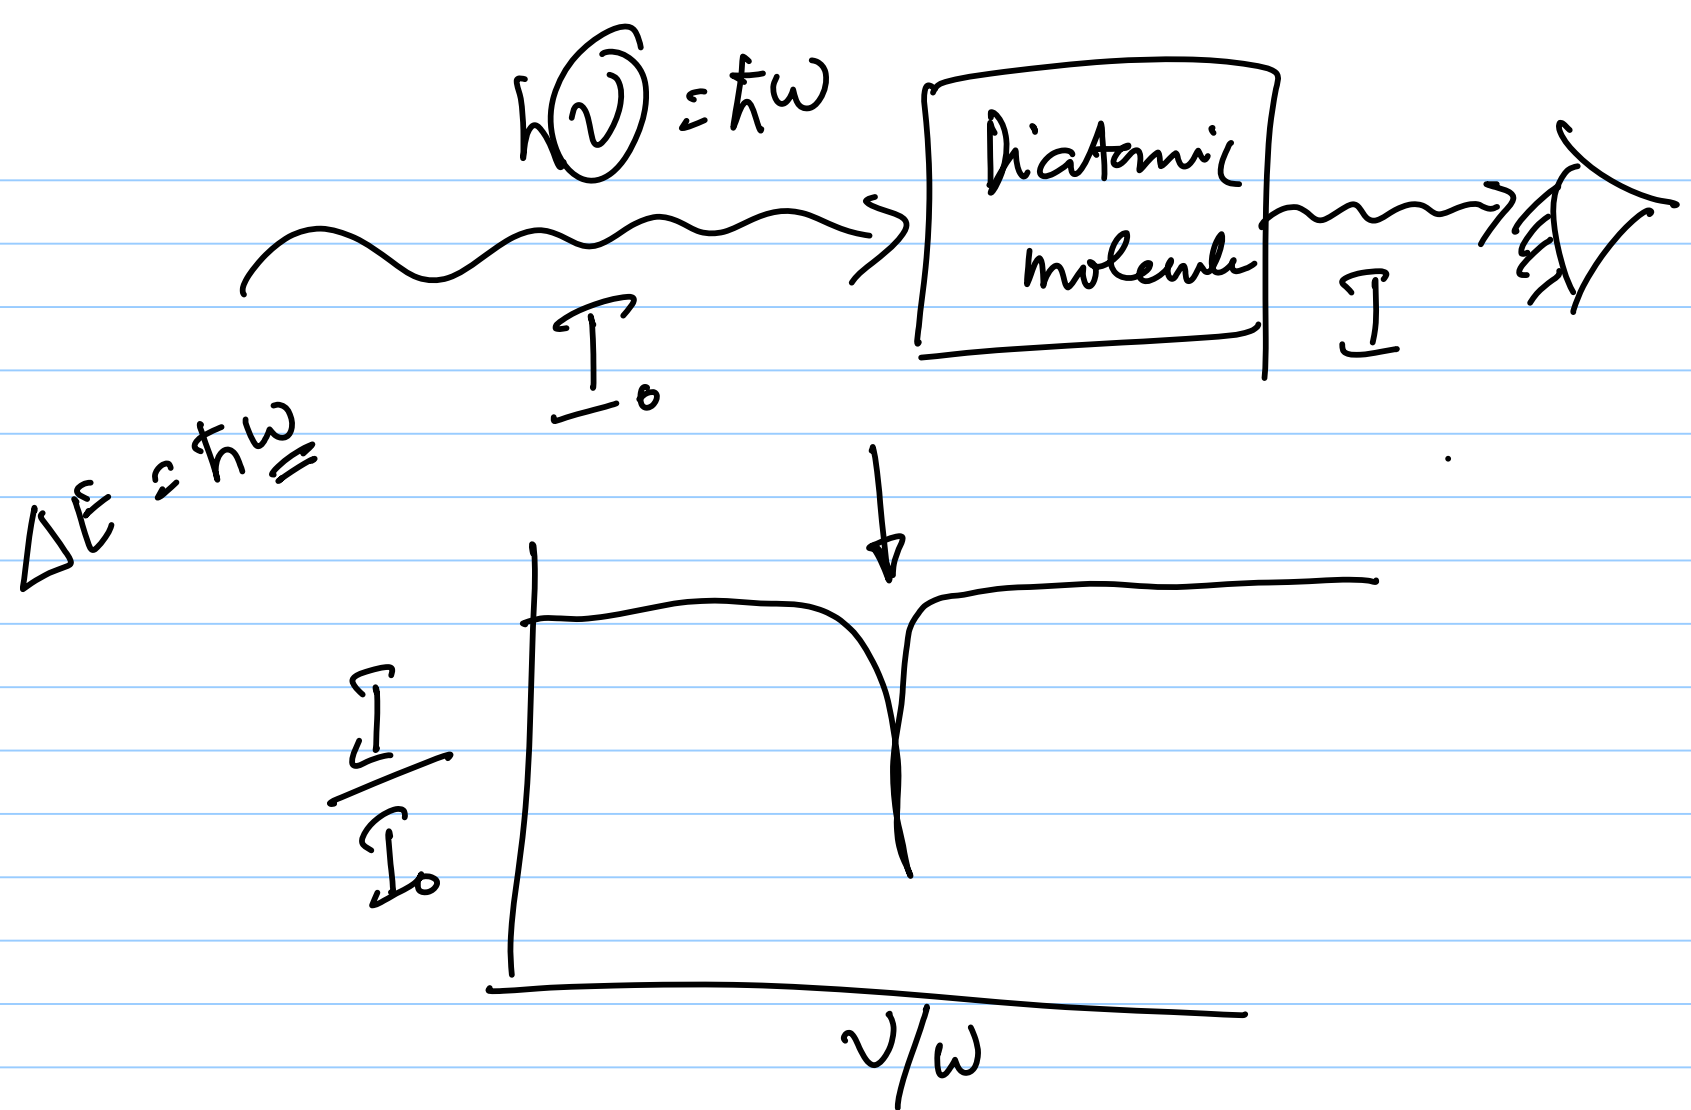 hν = ħω
Diatomic
molecule
I₀
I
ΔE = ħω
I/I₀
ν/ω